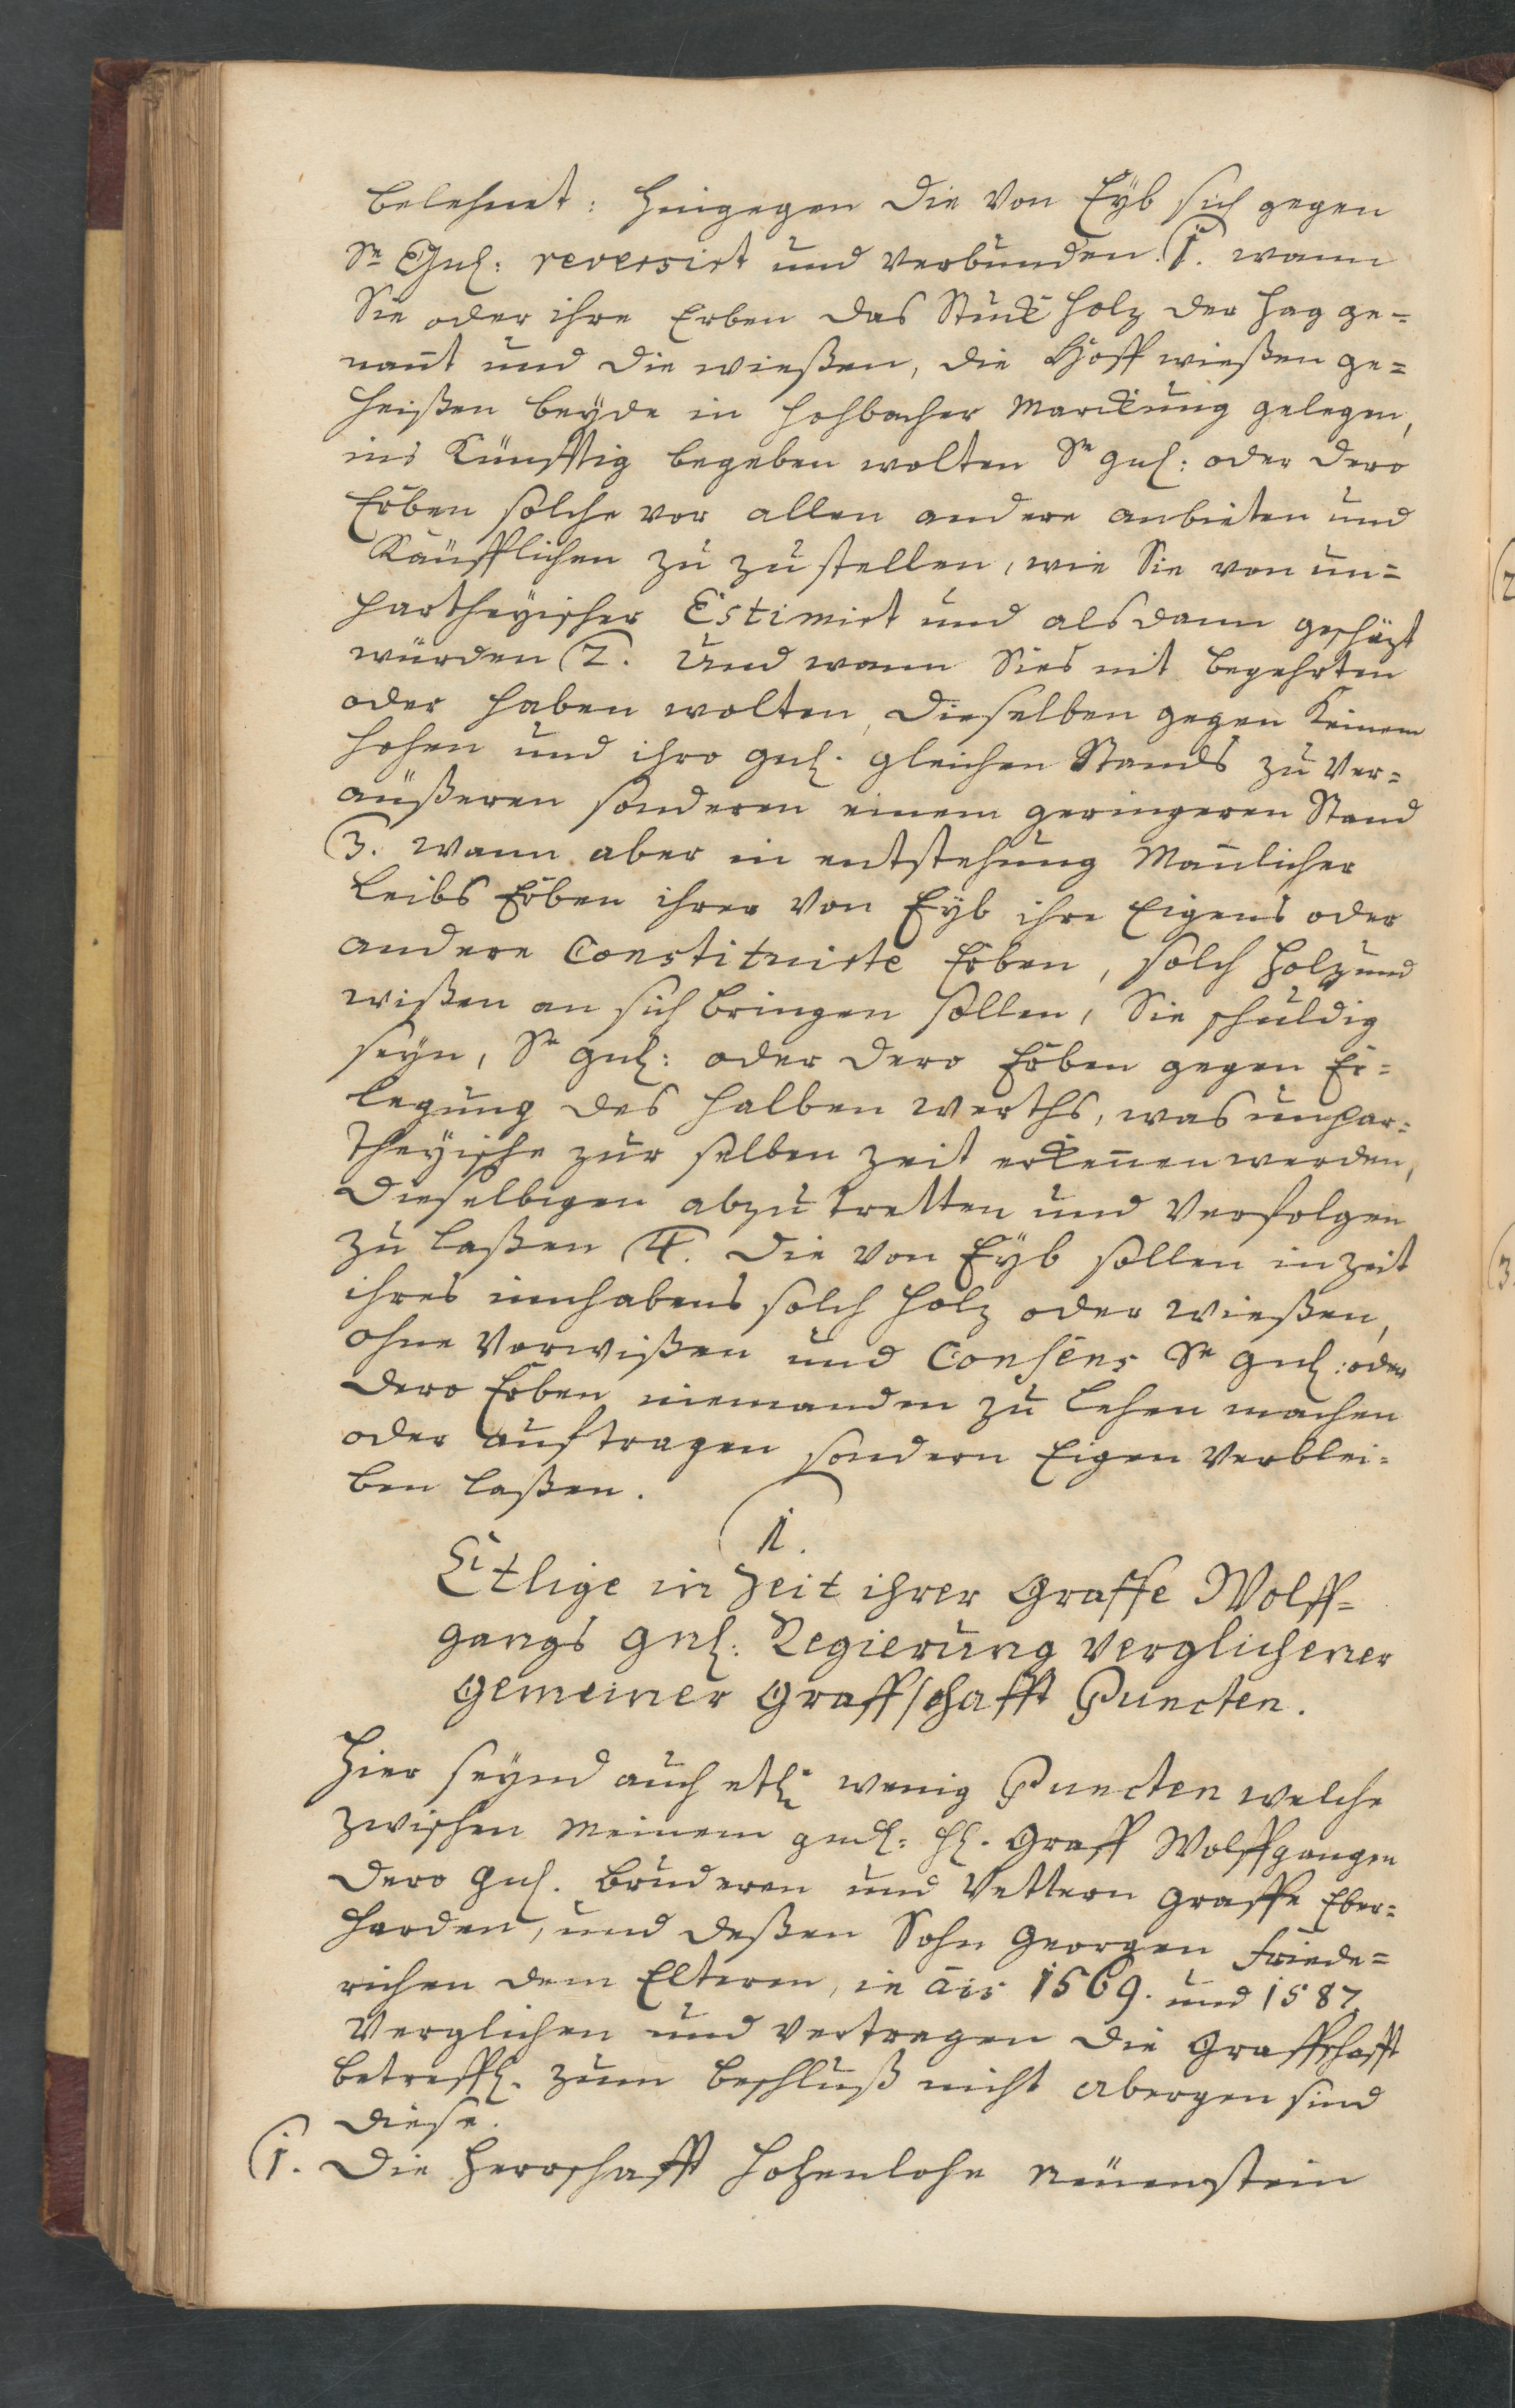 belehnet: hingegen die Von Eÿb sich gegen
Sr Gnl: reversirt und verbunden. (1. wann
Sie oder ihre Erben das Stuck holz der hag ge-
nañt und die wießen, die Hoff wießen ge=
heißen beÿde in Hohbacher Marckung gelegen,
ins Künfftig begeben wolten Sr gnl: oder dero
Erben solche vor allen andere anbieten und
Käufflichen zu zustellen, wie Sie von un=
partheÿischer Estimirt und alsdann geschäzt
würden (2. Und wann Sies nit begehrten
oder haben wolten, dieselben gegen keinem
hohen und ihro gnl. gleichen Stands zu Ver=
äußeren sonderen einem geringeren Stand
(3. wann aber in entstehung Mañlicher
Leibs Erben ihrer Von Eÿb ihre Eigens oder
andere Constituirte Erben, solch holz und
wißen an sich bringen sollen, Sie schuldig
seÿn, Sr gnl: oder dero Erben gegen Er=
legung des halben werths, was unpar=
theÿische zur selben zeit erkeñen werden,
dieselbigen abzutretten und Verfolgen
zu laßen (4. die Von Eÿb sollen in zeit
ihres innhabens solch holz oder wießen,
ohne Vorwißen und Consens Sr gnl: oder
dero Erben niemanden zu Lehen machen
oder auftragen sondern Eigen verblei=
ben laßen.
(1.
Etlige in zeit ihrer Graffe Wolff=
gangs gnl: Regierung verglichener
gemeiner Graffschafft Puncten.
Hier seynd auch etl. wenig Puncten welche
zwischen meinem gndl: Hl. Graff Wolffgangen
dero gnl. Bruderen und Vettern Graffe Eber=
harden, und deßen Sohn Georgen Friede=
richen dem Elteren, in ais 1569. und 1587.
Verglichen und vertragen die Graffschafft
betreffl. zum beschluß nicht abergen sind
diese.
(1. Die Herrschafft Hohenlohe Neuenstein